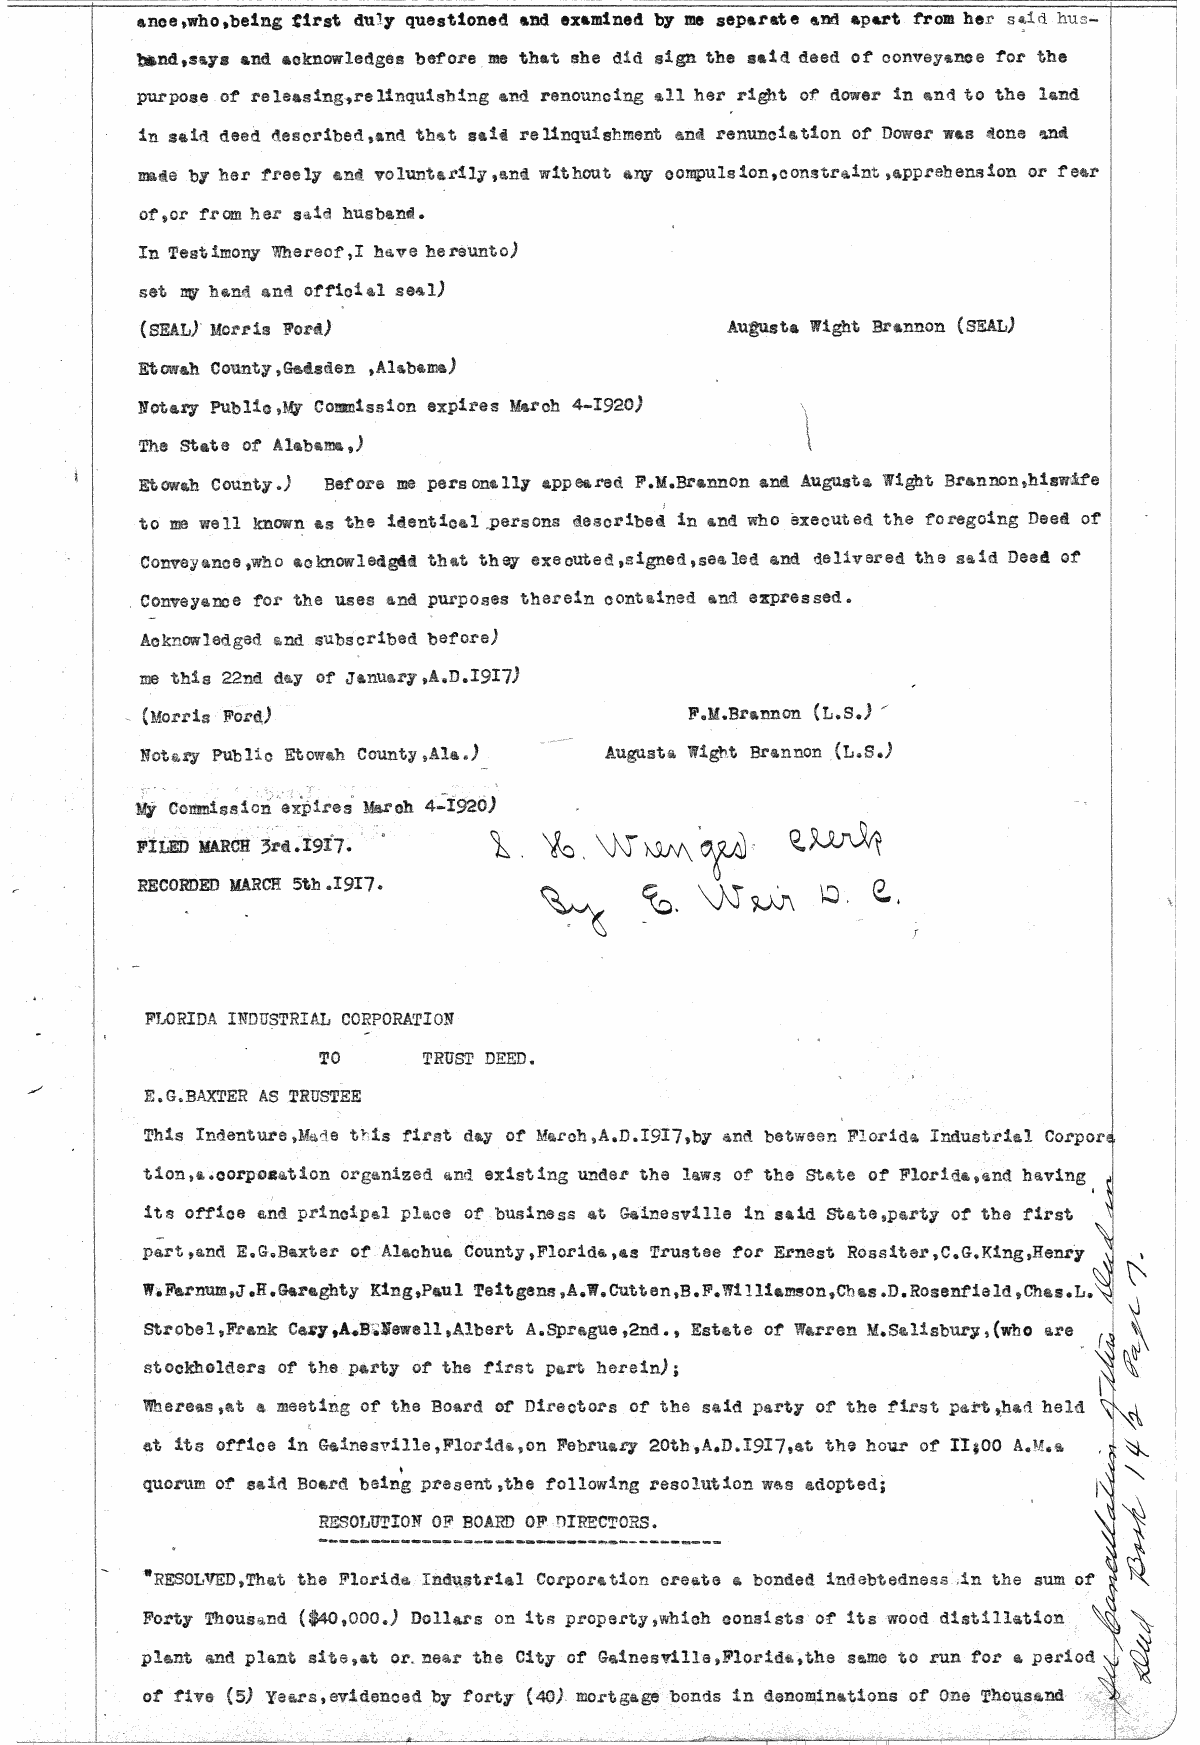 ance,who,being first duly questioned and examined by me separate and apart from her said hus-
band,says and acknowledges before me that she did sign the said deed of conveyance for the
purpose of releasing,relinquishing and renouncing all her right of dower in and to the land
in said deed described,and that said relinquishment and renunciation of Dower was done and
made by her freely and voluntarily,and without any compulsion,constraint,apprehension or fear
of,or from her said husband.
In Testimony Whereof,I have hereunto)
set my hand and official seal)
(SEAL) Morris Ford) Augusta Wight Brannon (SEAL)
Etowah County,Gadsden ,Alabama)
Notary Public,My Commission expires March 4-I920)
The State of Alabama,)
Etowah County.) Before me personally appeared F.M.Brannon and Augusta Wight Brannon,hiswife
to me well known as the identical persons described in and who executed the foregoing Deed of
Conveyance,who acknowledgdd that they executed,signed,sealed and delivered the said Deed of
Conveyance for the uses and purposes therein contained and expressed.
Acknowledged and subscribed before)
me this 22nd day of January,A.D.I9I7)
(Morris Ford) F.M.Brannon (L.S.)
Notary Public Etowah County,Ala.) Augusta Wight Brannon (L.S.)
My Commission expires March 4-I920)
FILED MARCH 3rd.I9I7. S. H. Wienges Clerk
RECORDED MARCH 5th.I9I7. By E. Weir D. C.
FLORIDA INDUSTRIAL CORPORATION
TO TRUST DEED.
E.G.BAXTER AS TRUSTEE
This Indenture,Made this first day of March,A.D.I9I7,by and between Florida Industrial Corpora
tion,a.corporation organized and existing under the laws of the State of Florida,and having
its office and principal place of business at Gainesville in said State,party of the first
part,and E.G.Baxter of Alachua County,Florida,as Trustee for Ernest Rossiter,C.G.King,Henry
W.Farnum,J.H.Garaghty King,Paul Teitgens,A.W.Cutten,B.F.Williamson,Chas.D.Rosenfield,Chas.L.
Strobel,Frank Cary,A.B.Newell,Albert A.Sprague,2nd., Estate of Warren M.Salisbury,(who are
stockholders of the party of the first part herein);
Whereas,at a meeting of the Board of Directors of the said party of the first part,had held
at its office in Gainesville,Florida,on February 20th,A.D.I9I7,at the hour of II;00 A.M.a
quorum of said Board being present,the following resolution was adopted;
RESOLUTION OF BOARD OF DIRECTORS.
"RESOLVED,That the Florida Industrial Corporation create a bonded indebtedness in the sum of
Forty Thousand ($40,000.) Dollars on its property,which consists of its wood distillation
plant and plant site,at or near the City of Gainesville,Florida,the same to run for a period
of five (5) Years,evidenced by forty (40) mortgage bonds in denominations of One Thousand
See Cancellation of this Deed in
Deed Book 142 Page 7.